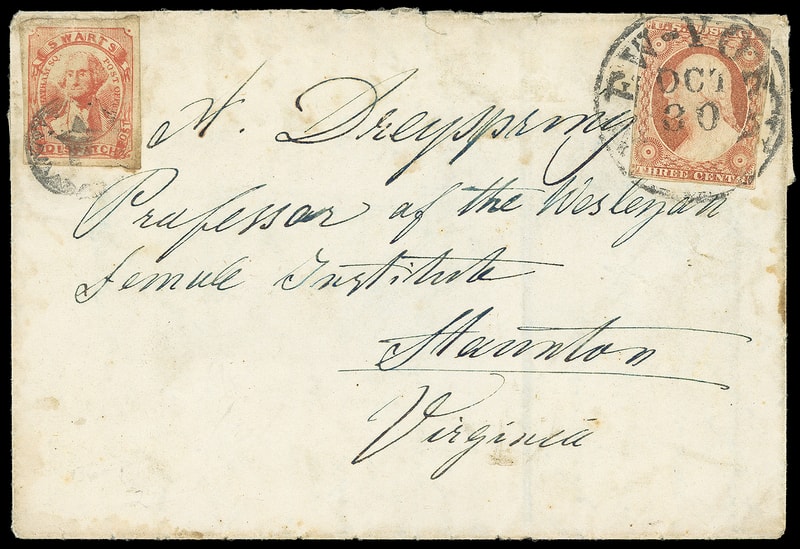 SWARTS
CHATHAM SQ. POST OFFICE
DISPATCH
NEW-YORK
OCT
30
THREE CENTS
A. Dreyspring
Professor of the Wesleyan
Female Institute
Staunton
Virginia